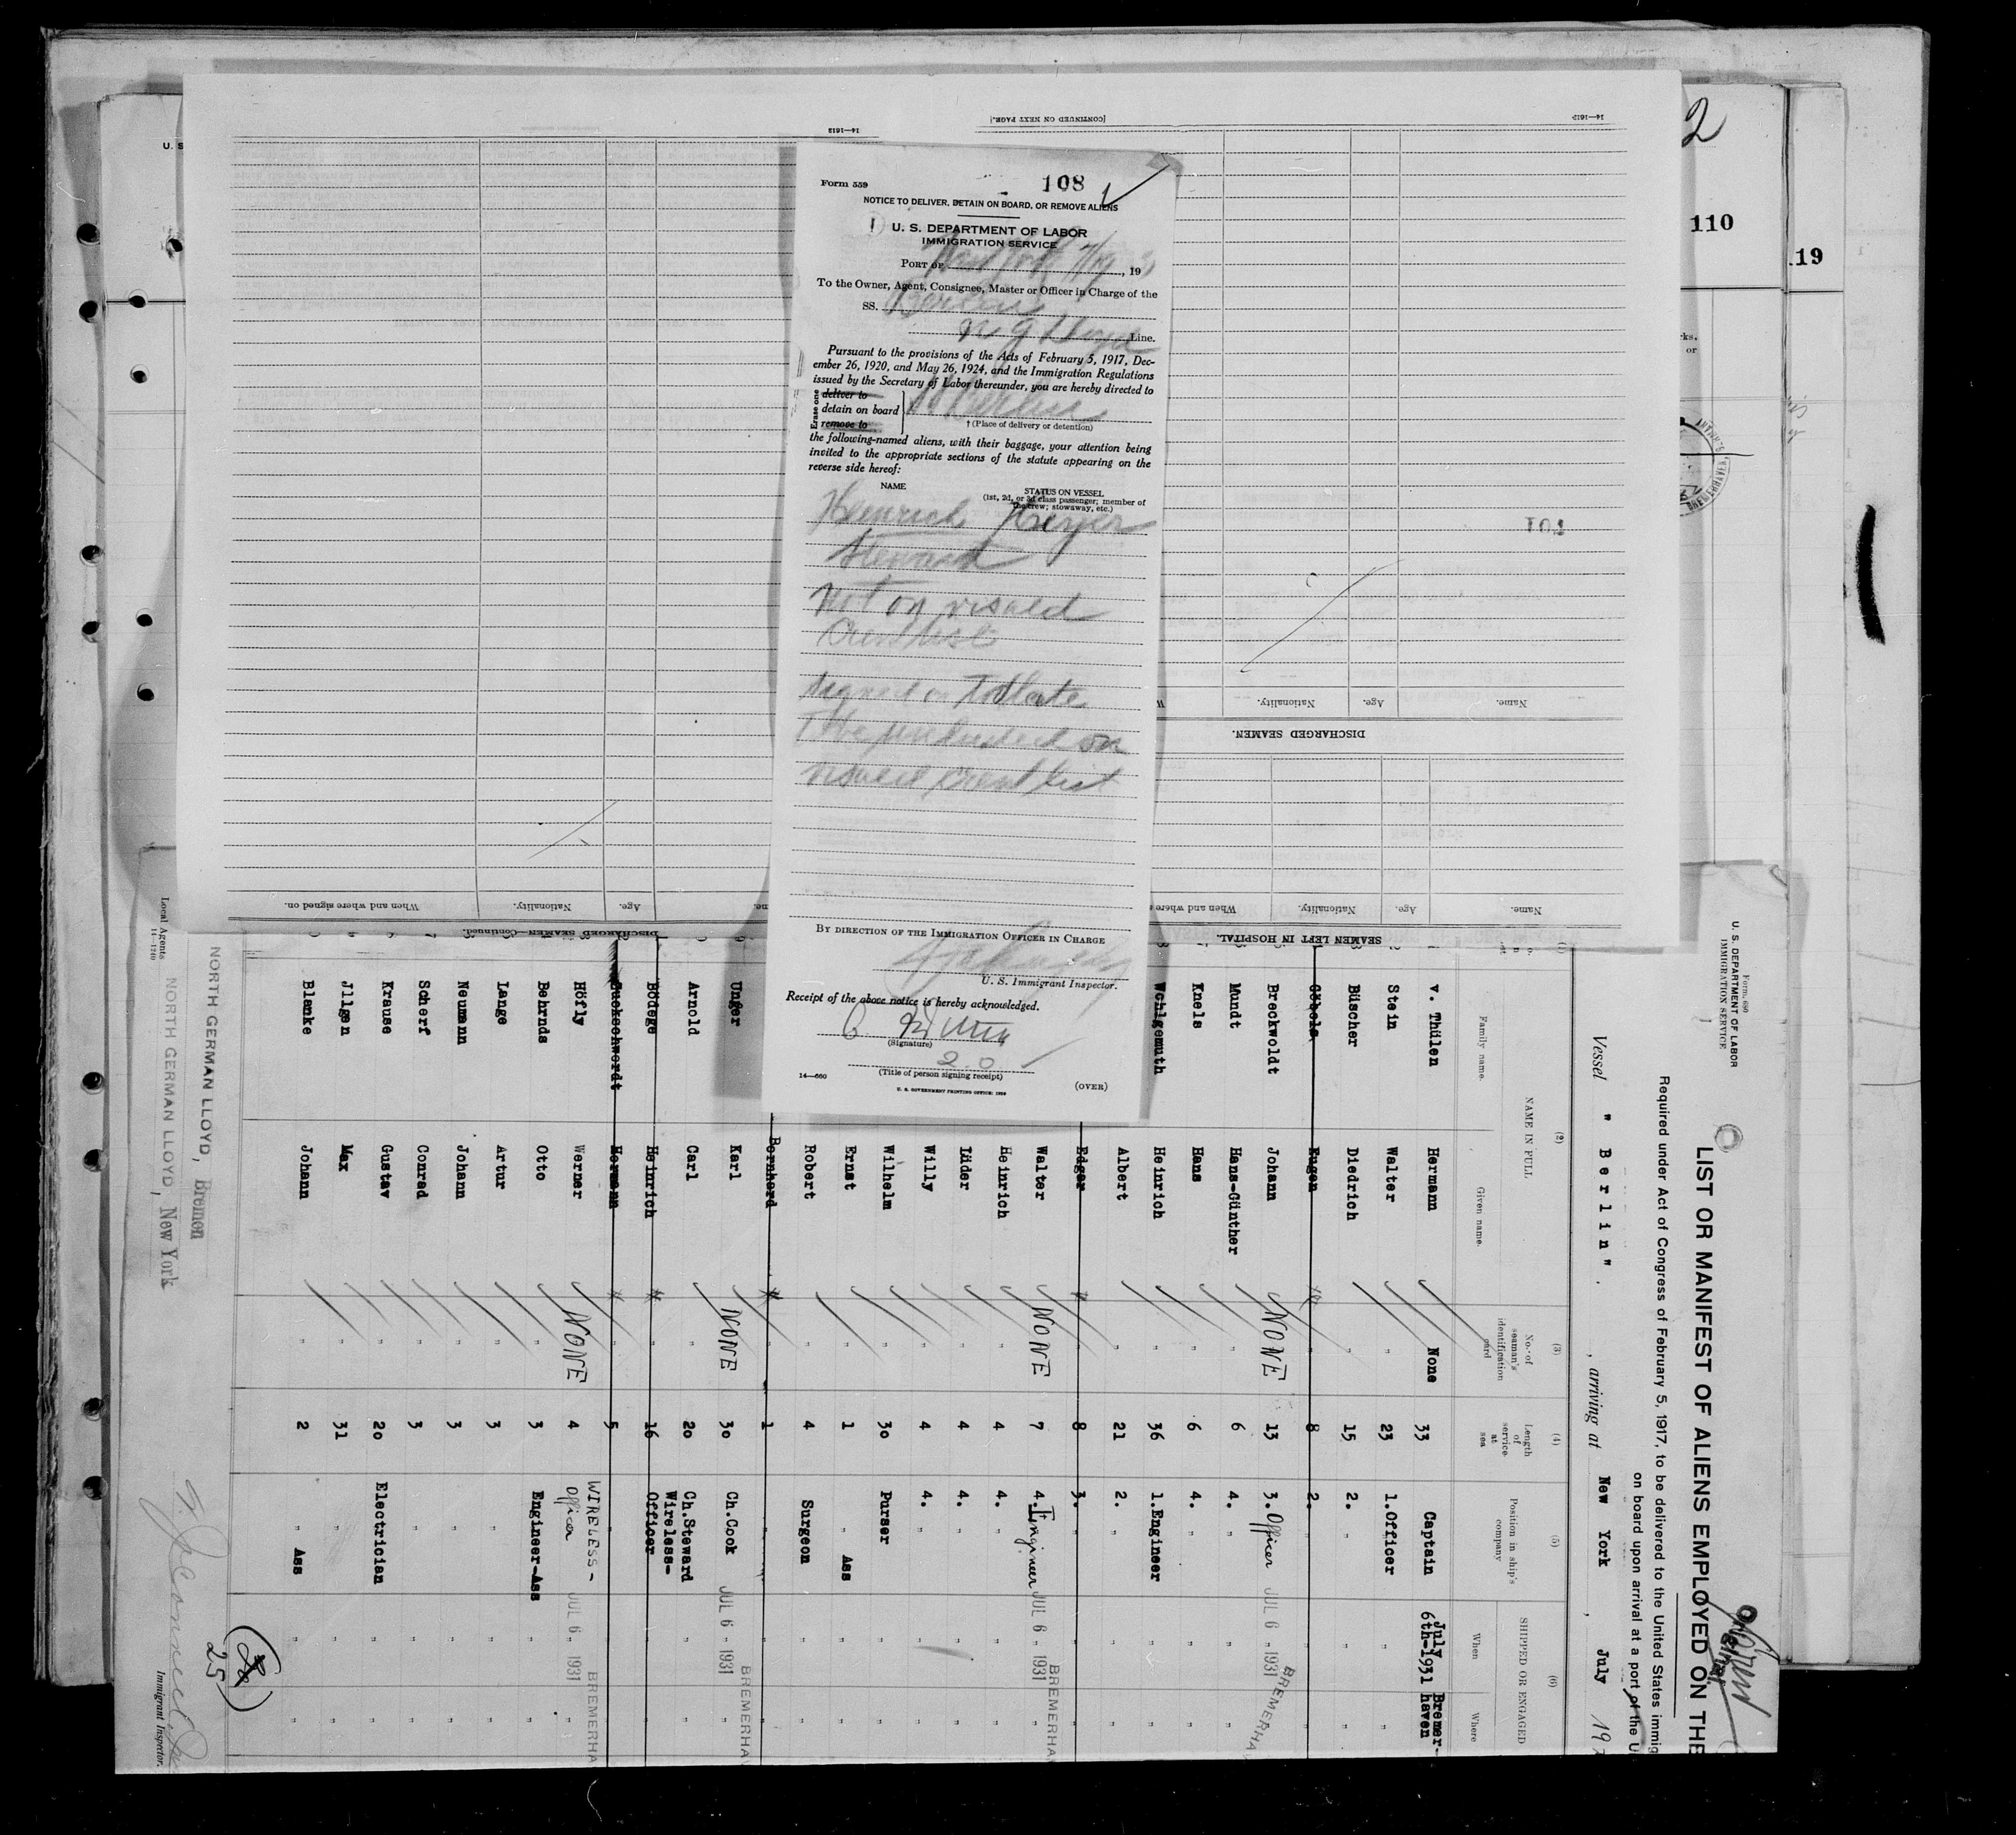 2
110
119
Form 559
108
NOTICE TO DELIVER, DETAIN ON BOARD, OR REMOVE ALIENS
U. S. DEPARTMENT OF LABOR
IMMIGRATION SERVICE
PORT OF New York 7/19, 193
To the Owner, Agent, Consignee, Master or Officer in Charge of the
SS. Berlin
N. G. Lloyd Line.
Pursuant to the provisions of the Acts of February 5, 1917, Dec-
ember 26, 1920, and May 26, 1924, and the Immigration Regulations
issued by the Secretary of Labor thereunder, you are hereby directed to
Erase one
deliver to
detain on board
remove to
SS Berlin
† (Place of delivery or detention)
the following-named aliens, with their baggage, your attention being
invited to the appropriate sections of the statute appearing on the
reverse side hereof:
NAME
STATUS ON VESSEL
(1st, 2d, or 3d class passenger; member of
the crew; stowaway, etc.)
Heinrich
Steward
not on visaed
Crew list
Signed on Too late
To be included on
visaed crew list
BY DIRECTION OF THE IMMIGRATION OFFICER IN CHARGE
U. S. Immigrant Inspector.
Receipt of the above notice is hereby acknowledged.
(Signature)
2.O
(Title of person signing receipt)
14—660
U. S. GOVERNMENT PRINTING OFFICE: 1929
(OVER)
14—1613
[CONTINUED ON NEXT PAGE.]
14—1613
107
Name.
Age.
Nationality.
DISCHARGED SEAMEN.
Name.
Age.
Nationality.
When and where
SEAMEN LEFT IN HOSPITAL.
Age.
Nationality.
When and where signed on.
DISCHARGED SEAMEN—Continued.
Form 680
U. S. DEPARTMENT OF LABOR
IMMIGRATION SERVICE
LIST OR MANIFEST OF ALIENS EMPLOYED ON THE
Required under Act of Congress of February 5, 1917, to be delivered to the United States immig
on board upon arrival at a port of the U
Vessel " Berlin ". , arriving at New York , July 19
(2) (3) (4) (5) (6)
NAME IN FULL
Family name. Given name.
No. of seaman's identification card
Length of service at sea
Position in ship's company
SHIPPED OR ENGAGED
When Where
v. Thülen Hermann None 33 Captain July 6th-1931 Bremer-haven
Stein Walter " 23 1.Officer " "
Büscher Diedrich " 15 2. " " "
Göbels Eugen " 8 2. " " "
Breckwoldt Johann NONE 13 3. Officer JUL 6 1931 BREMERHA
Mundt Hans-Günther " 6 4. " " "
Knels Hans " 6 4. " " "
Wohlgemuth Heinrich " 36 1.Engineer " "
Albert " 21 2. " " "
Edgar " 8 3. " " "
Walter NONE 7 4. Engineer JUL 6 1931 BREMERHA
Heinrich " 4 4. " " "
Lüder " 4 4. " " "
Willy " 4 4. " " "
Wilhelm " 30 Purser " "
Ernst " 1 " Ass " "
Robert " 4 Surgeon " "
Bernhard " 1 " " "
Unger Karl NONE 30 Ch.Cook JUL 6 1931 BREMERHA
Arnold Carl " 20 Ch.Steward " "
Bödege Heinrich " 16 Wireless-Officer " "
Hermann " 5 " "
Höfly Werner NONE 4 WIRELESS-Officer JUL 6 1931 BREMERHA
Behrnds Otto " 3 Engineer-Ass " "
Lange Artur " 3 " " "
Neumann Johann " 3 " " "
Scherf Conrad " 3 " "
Krause Gustav " 20 Electrician " "
Jllgen Max " 31 " " "
Blanke Johann " 2 " Ass " "
NORTH GERMAN LLOYD, Bremen
NORTH GERMAN LLOYD, New York
Local Agents
14—1240
25
Immigrant Inspector.